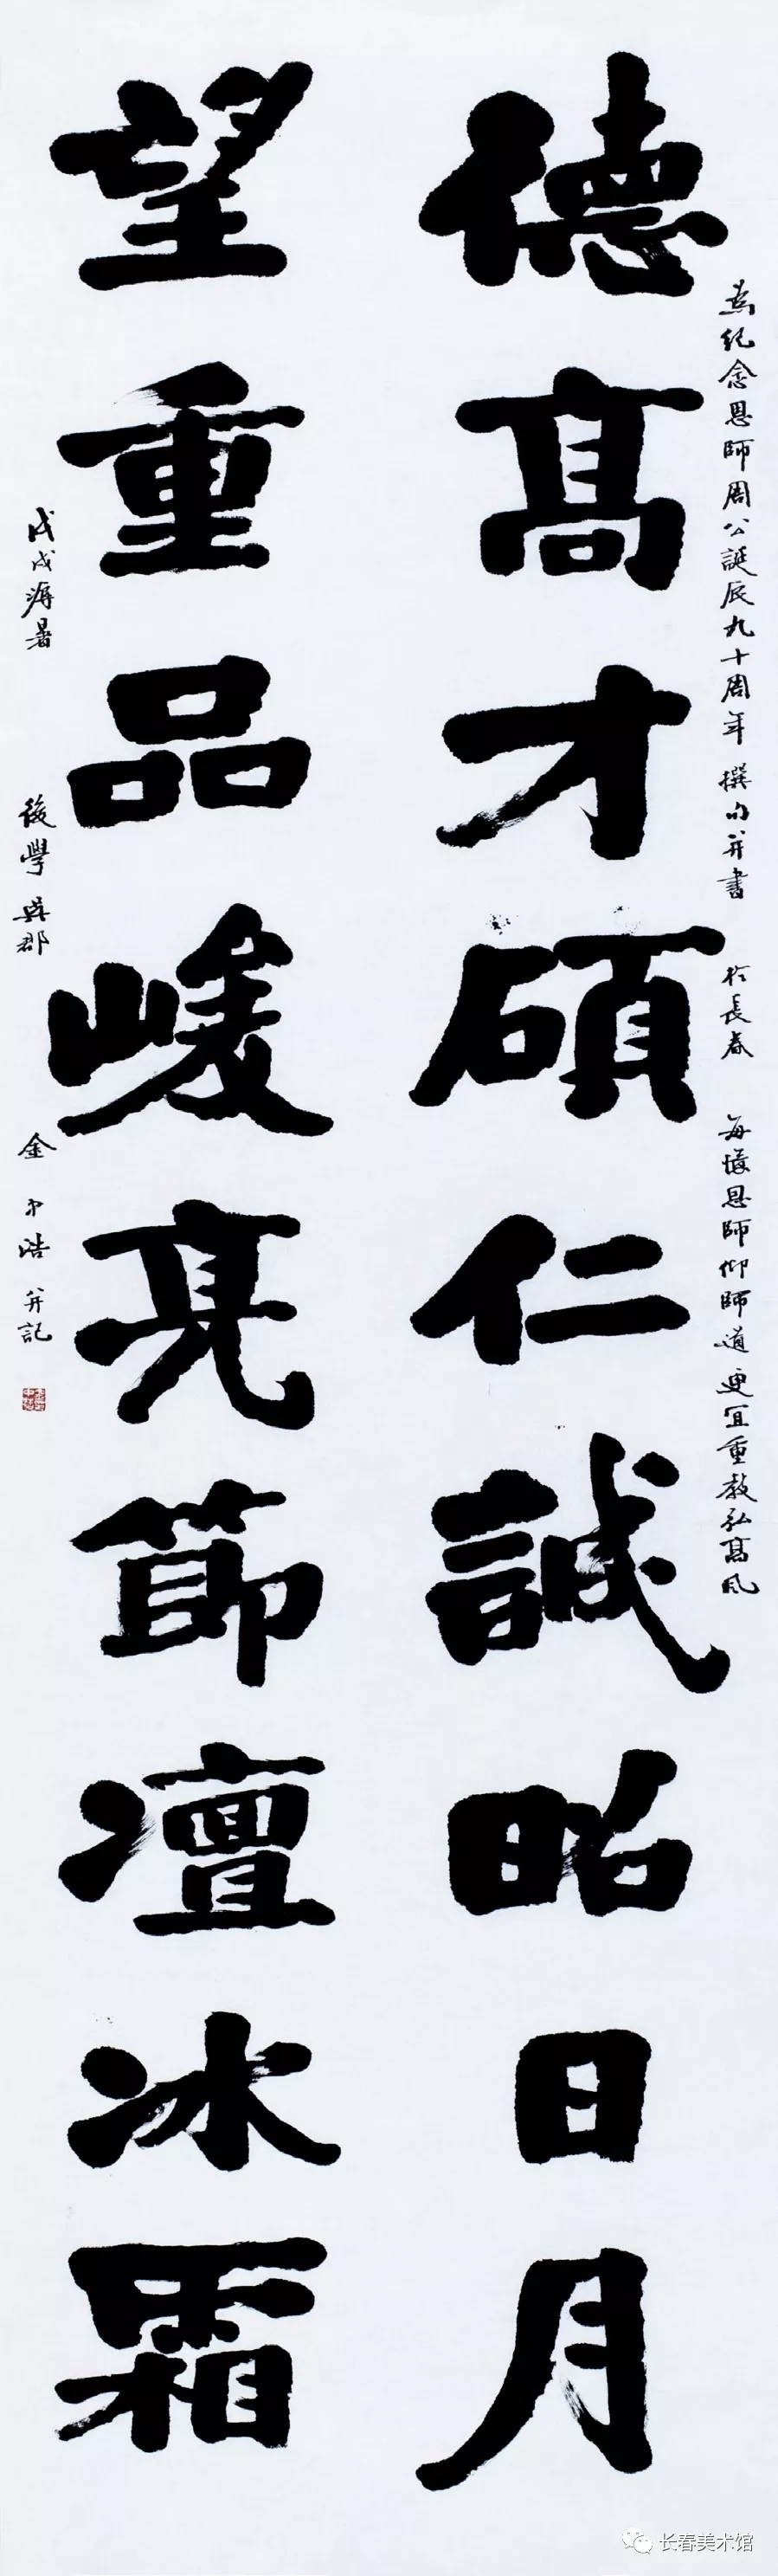 為紀念恩師周公誕辰九十周年 撰句并書 於長春 每憶恩師仰師道 更宜重教弘髙風
德髙才碩仁誠昭日月
望重品峻亮節凜冰霜
戊戌溽暑 後學 吳郡 金中浩 并記
长春美术馆